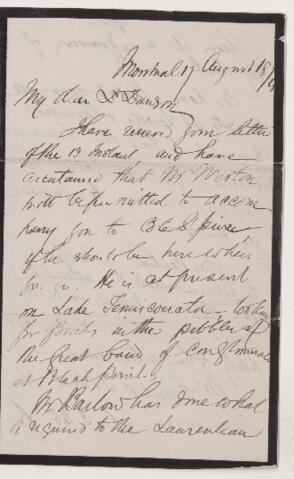 Montreal 17 August 18
My dear Dr Dawson,
I have received your letter
of the 13 Instant, and have
ascertained that Mr Weston
will be permitted to accom
pany you to
if he should be here when
you. He is at present
on Lake Temiscouata - looking
for fossils in the pebbles of
the great band of conglomerate
at
Mr Barlow has done what
is required to the Laurentian